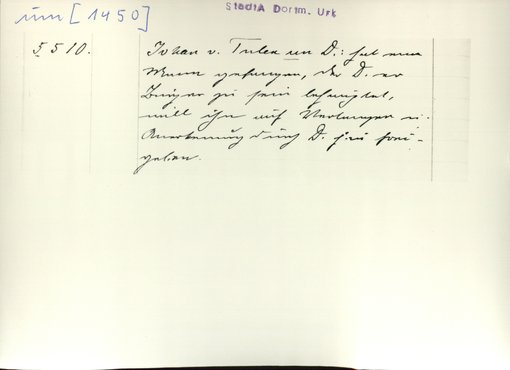 um [1450]
StadtA Dortm. Urk
5510.
Johan v. an D.: hat einen
Mann gefangen, der D. er
Bürger zu sein behauptet,
will ihn auf Verlangen u.
Anerkennung durch D. frei-
geben.